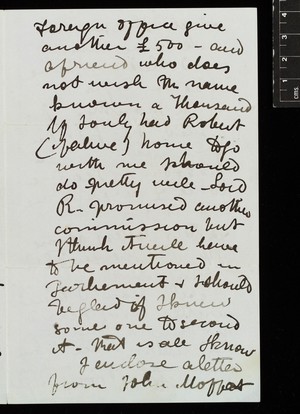 Foreign Office give
another £500 - and
a friend who does
not wish the name
known a Thousand
If I only had Robert
(Yalive) home to go
with me I should
do pretty well - Lord
R. promised another
commission but
I think it will have
to be mentioned in
Parliament & I should
be glad if I knew
some one to second
it - that is all I know
I enclose a letter
from John Moffat
cms.
1
2
3
4